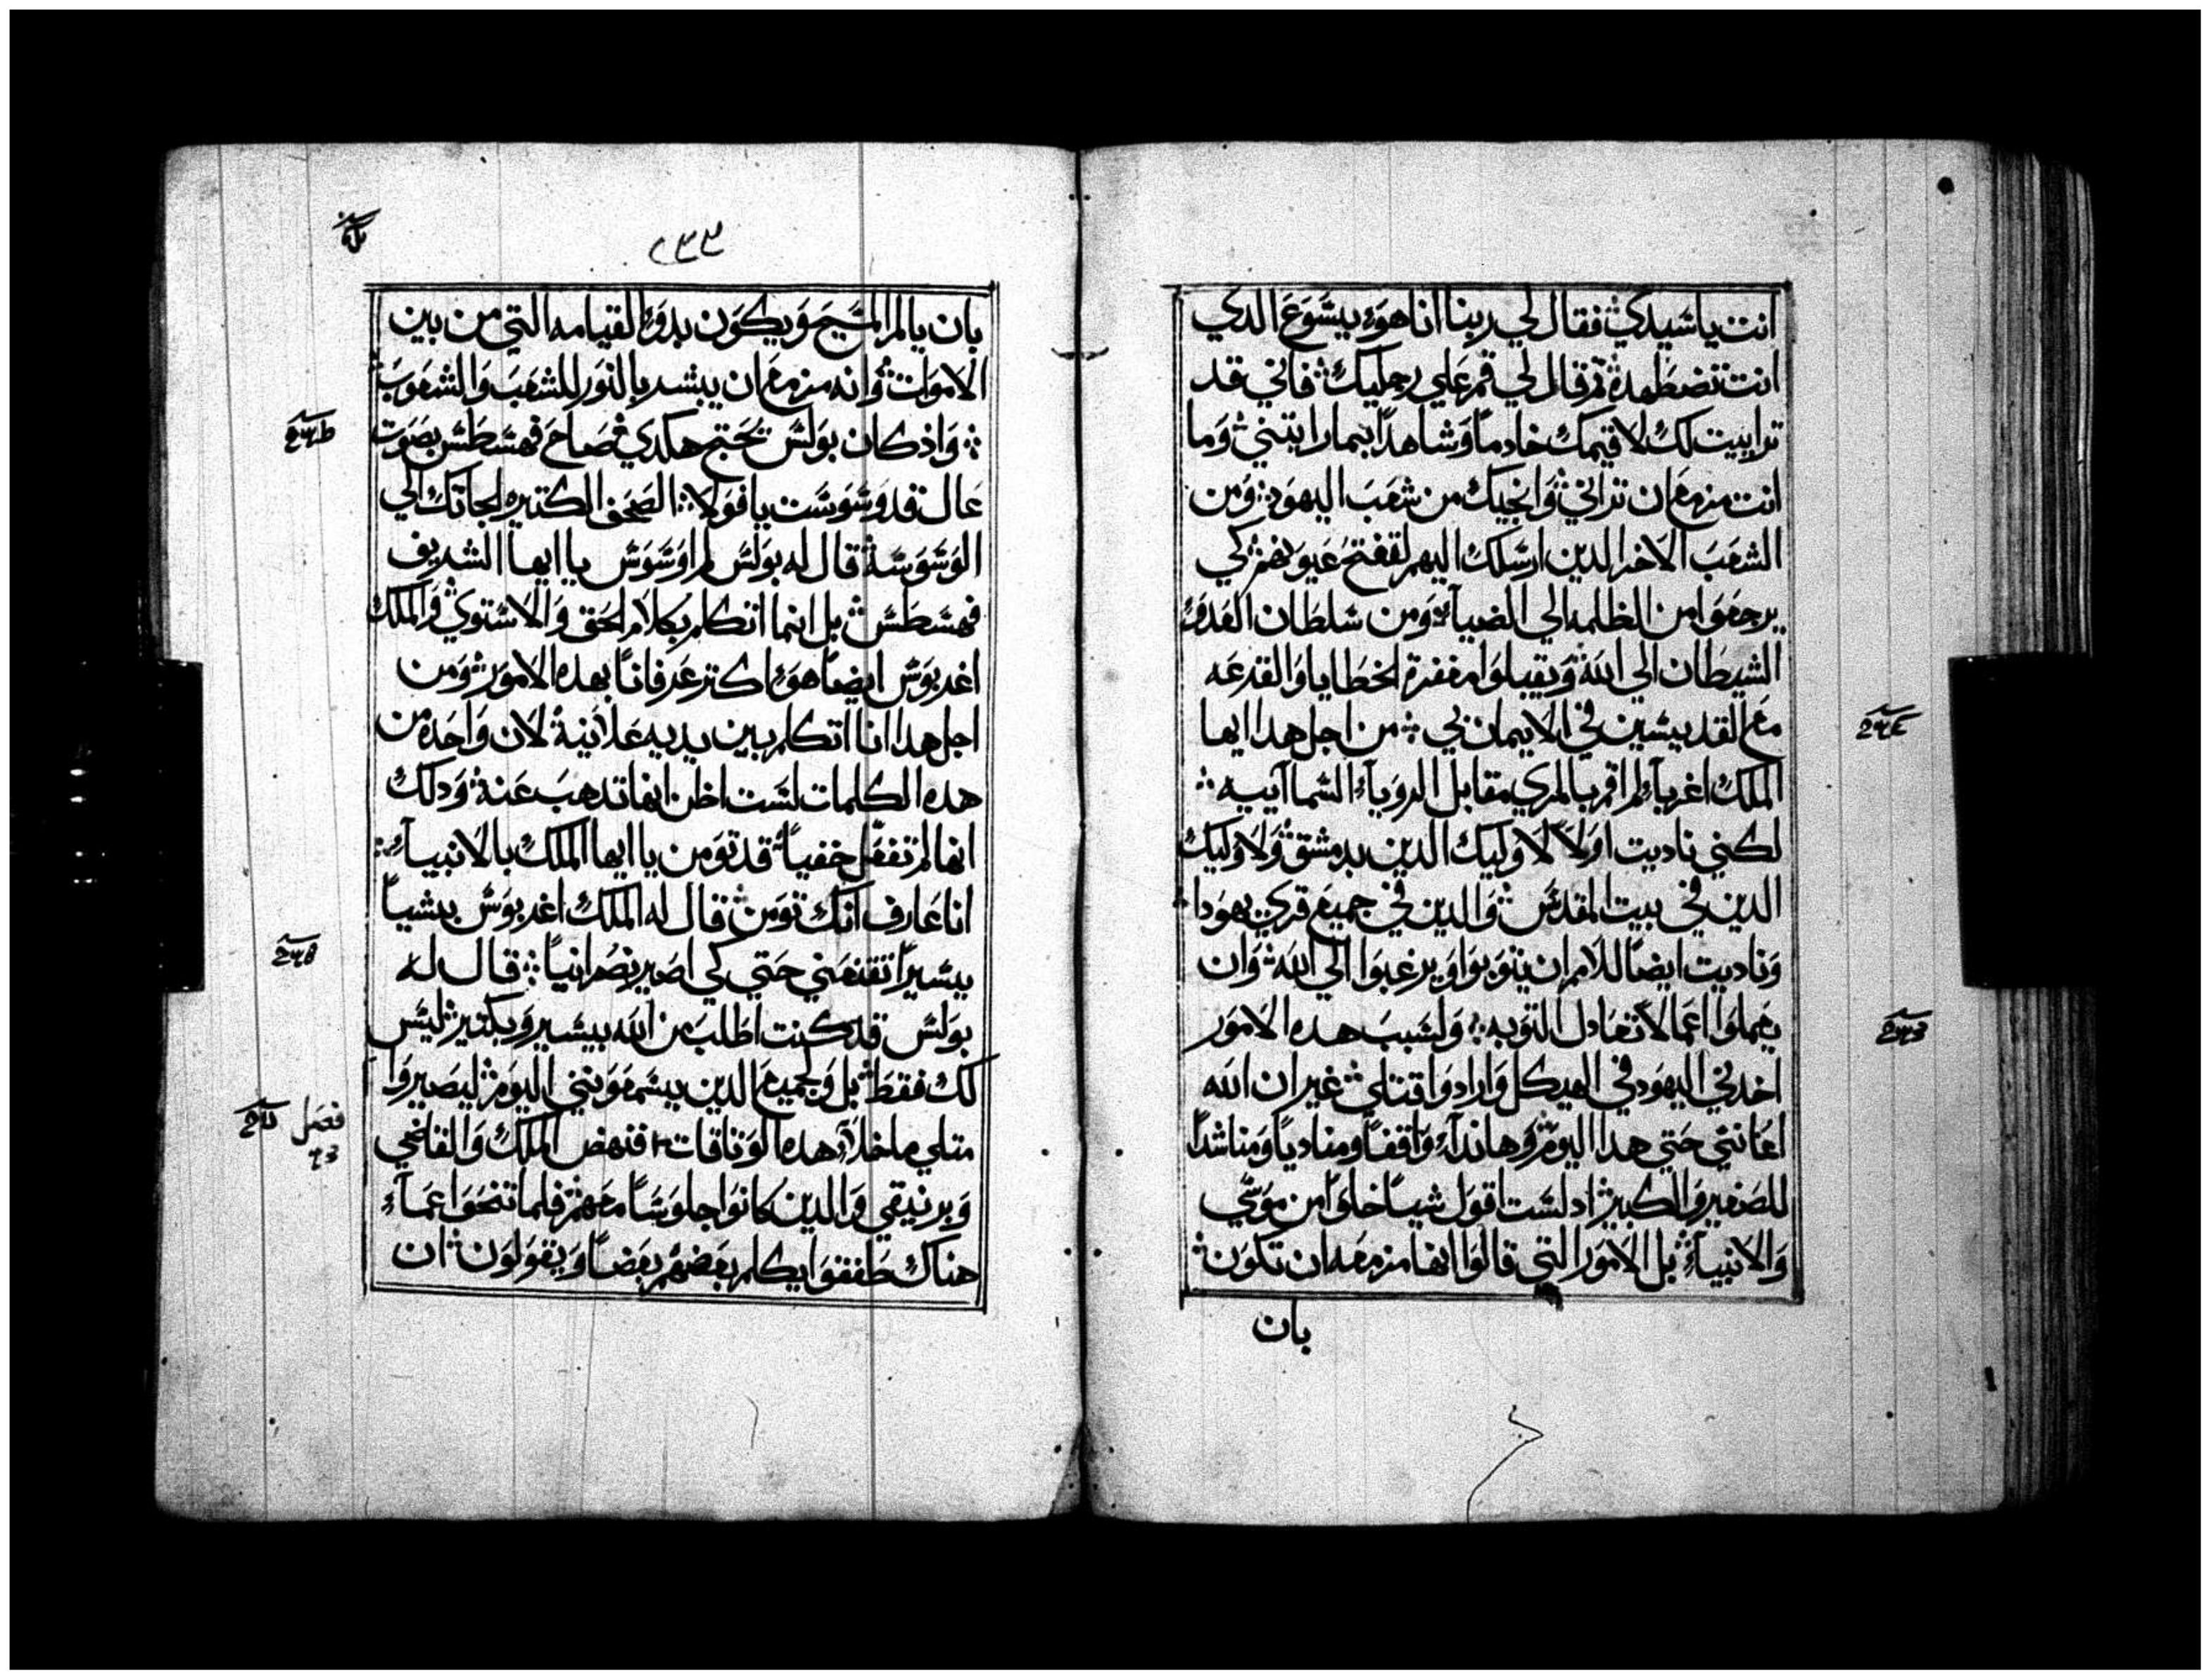 انت ياسيدي فقال لي ربنا انا هو يسوع الدي
انت تضطهده ثم قال لي قم علي رجليك فاني قد
ترايت لك لاقيمك خادماً وشاهداً بما رايتني وما
انت مزمع ان تراني وانجيك من شعب اليهود ومن
الشعب الاخر الدين ارسلك اليهم لتفتح عيونهم كي
يرجعوا من الظلمه الي الضياء ومن سلطان العدو
الشيطان الي الله ويقبلوا مغفرة الخطايا والقرعه
مع القديسين في الايمان بي من اجل هدا ايها
الملك اغريبا لم اقم بالمري مقابل الرويا السماييه
لكني ناديت اولاً لاوليك الدين بدمشق ولاوليك
الدين في بيت المقدس والدين في جميع قري يهودا
وناديت ايضاً للامم ان يتوبوا ويرغبوا الي الله وان
يعملوا اعمالاً تعادل التوبه ولسبب هده الامور
اخدني اليهود في الهيكل وارادوا قتلي غير ان الله
اعانني حتي هدا اليوم وهاندا واقفاً ومنادياً ومناشداً
للصغير والكبير اد لست اقول شياً خلوا من موسي
والانبياء بل الامور التي قالوا انها مزمعه ان تكون
بان
٢٣٣
بان يالم المسيح ويكون بدو القيامه التي من بين
الاموات وانه مزمع ان يبشر بالنور للشعب والشعوب
واذ كان بولس يحتج هكدي صاح فهسطس بصوت
عال قد وسوست يا فولا الصحف الكتيره الجاتك الي
الوسوسة قال له بولس لم اوسوس يا ايها الشريف
فهسطس بل انما اتكلم بكلام الحق والاستوي والملك
اغربوس ايضاً هو اكتر عرفاناً بهده الامور ومن
اجل هدا انا اتكلم بين يديه علانية لان واحده من
هده الكلمات لست اظن انها تدهب عنة ودلك
انها لم تفعل خفياً قد تومن يا ايها الملك بالانبياء
انا عارف انك تومن قال له الملك اغربوس بشياً
يسيراً تقنعني حتي كي اصير نصرانياً قال له
بولس قد كنت اطلب من الله بيسير وبكتير ليس
لك فقط بل ولجميع الدين يسمعونني اليوم ليصيروا
متلي ما خلا هده الوتاقات فنهض الملك والقاضي
وبرنيقي والدين كانوا جلوساً معهم فلما تنحوا عما
هناك طفقوا يكلم بعضهم بعضاً ويقولون ان
فصل